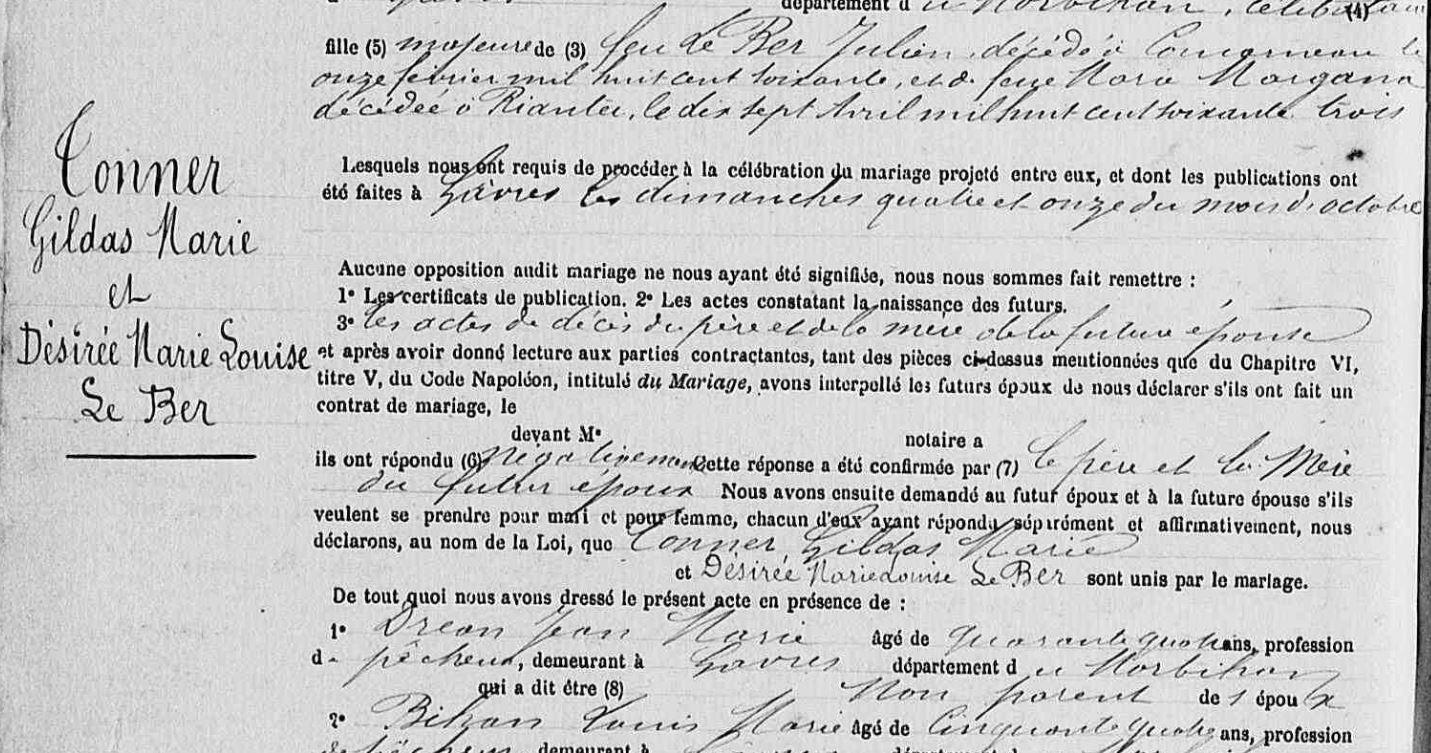 département du Morbihan, célibataire (4)
fille (5) majeure de (3) feu Le Ber Julien, décédé à Concarneau le
onze février mil huit cent soixante, et de feue Mara Morgana
décédée à Riantec, le dix sept Avril mil huit cent soixante trois
Tonner
Gildas Marie
et
Désirée Marie Louise
Le Ber
Lesquels nous ont requis de procéder à la célébration du mariage projeté entre eux, et dont les publications ont
été faites à Gâvres les dimanches quatre et onze du mois d'octobre
Aucune opposition audit mariage ne nous ayant été signifiée, nous nous sommes fait remettre :
1° Les certificats de publication. 2° Les actes constatant la naissance des futurs.
3° les actes de décès du père et de la mère de la future épouse
et après avoir donné lecture aux parties contractantes, tant des pièces ci-dessus mentionnées que du Chapitre VI,
titre V, du Code Napoléon, intitulé du Mariage, avons interpellé les futurs époux de nous déclarer s'ils ont fait un
contrat de mariage, le
devant Me notaire a
ils ont répondu (6) négativement Cette réponse a été confirmée par (7) le père et la Mère
du futur époux Nous avons ensuite demandé au futur époux et à la future épouse s'ils
veulent se prendre pour mari et pour femme, chacun d'eux ayant répondu séparément et affirmativement, nous
déclarons, au nom de la Loi, que Tonner, Gildas Marie
et Désirée Marie Louise Le Ber sont unis par le mariage.
De tout quoi nous avons dressé le présent acte en présence de :
1° Dréan Jean Marie âgé de quarante quatre ans, profession
de pêcheur, demeurant à Gavres département du Morbihan
qui a dit être (8) Non parent des époux
2° Bihan Louis Marie âgé de Cinquante quatre ans, profession
de pêcheur demeurant à